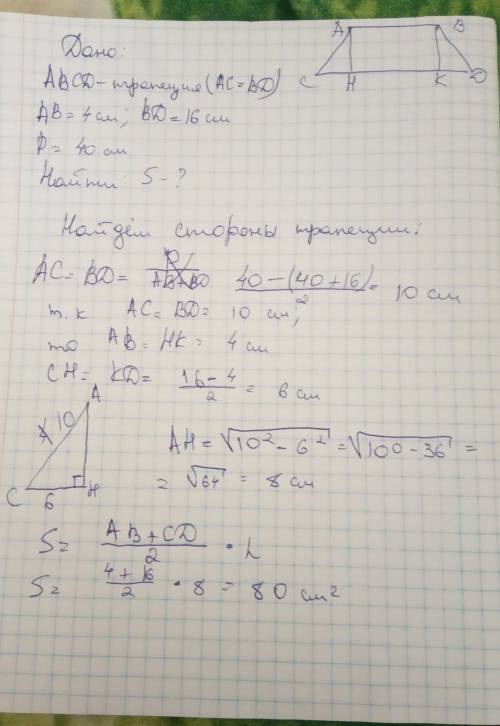 A B
Дано:
ABCD - трапеция (AC = BD)
C H K D
AB = 4 см; BD = 16 см
P = 40 см
Найти S - ?
Найдём стороны трапеции:
AC = BD = (40 - (40 + 16))/2 = 10 см
т.к AC = BD = 10 см;
то AB = HK = 4 см
CH = KD = (16 - 4)/2 = 6 см
A
10
AH = √(10² - 6²) = √(100 - 36) =
C 6 H
= √64 = 8 см
S = (AB + CD)/2 · h
S = (4 + 16)/2 · 8 = 80 см²